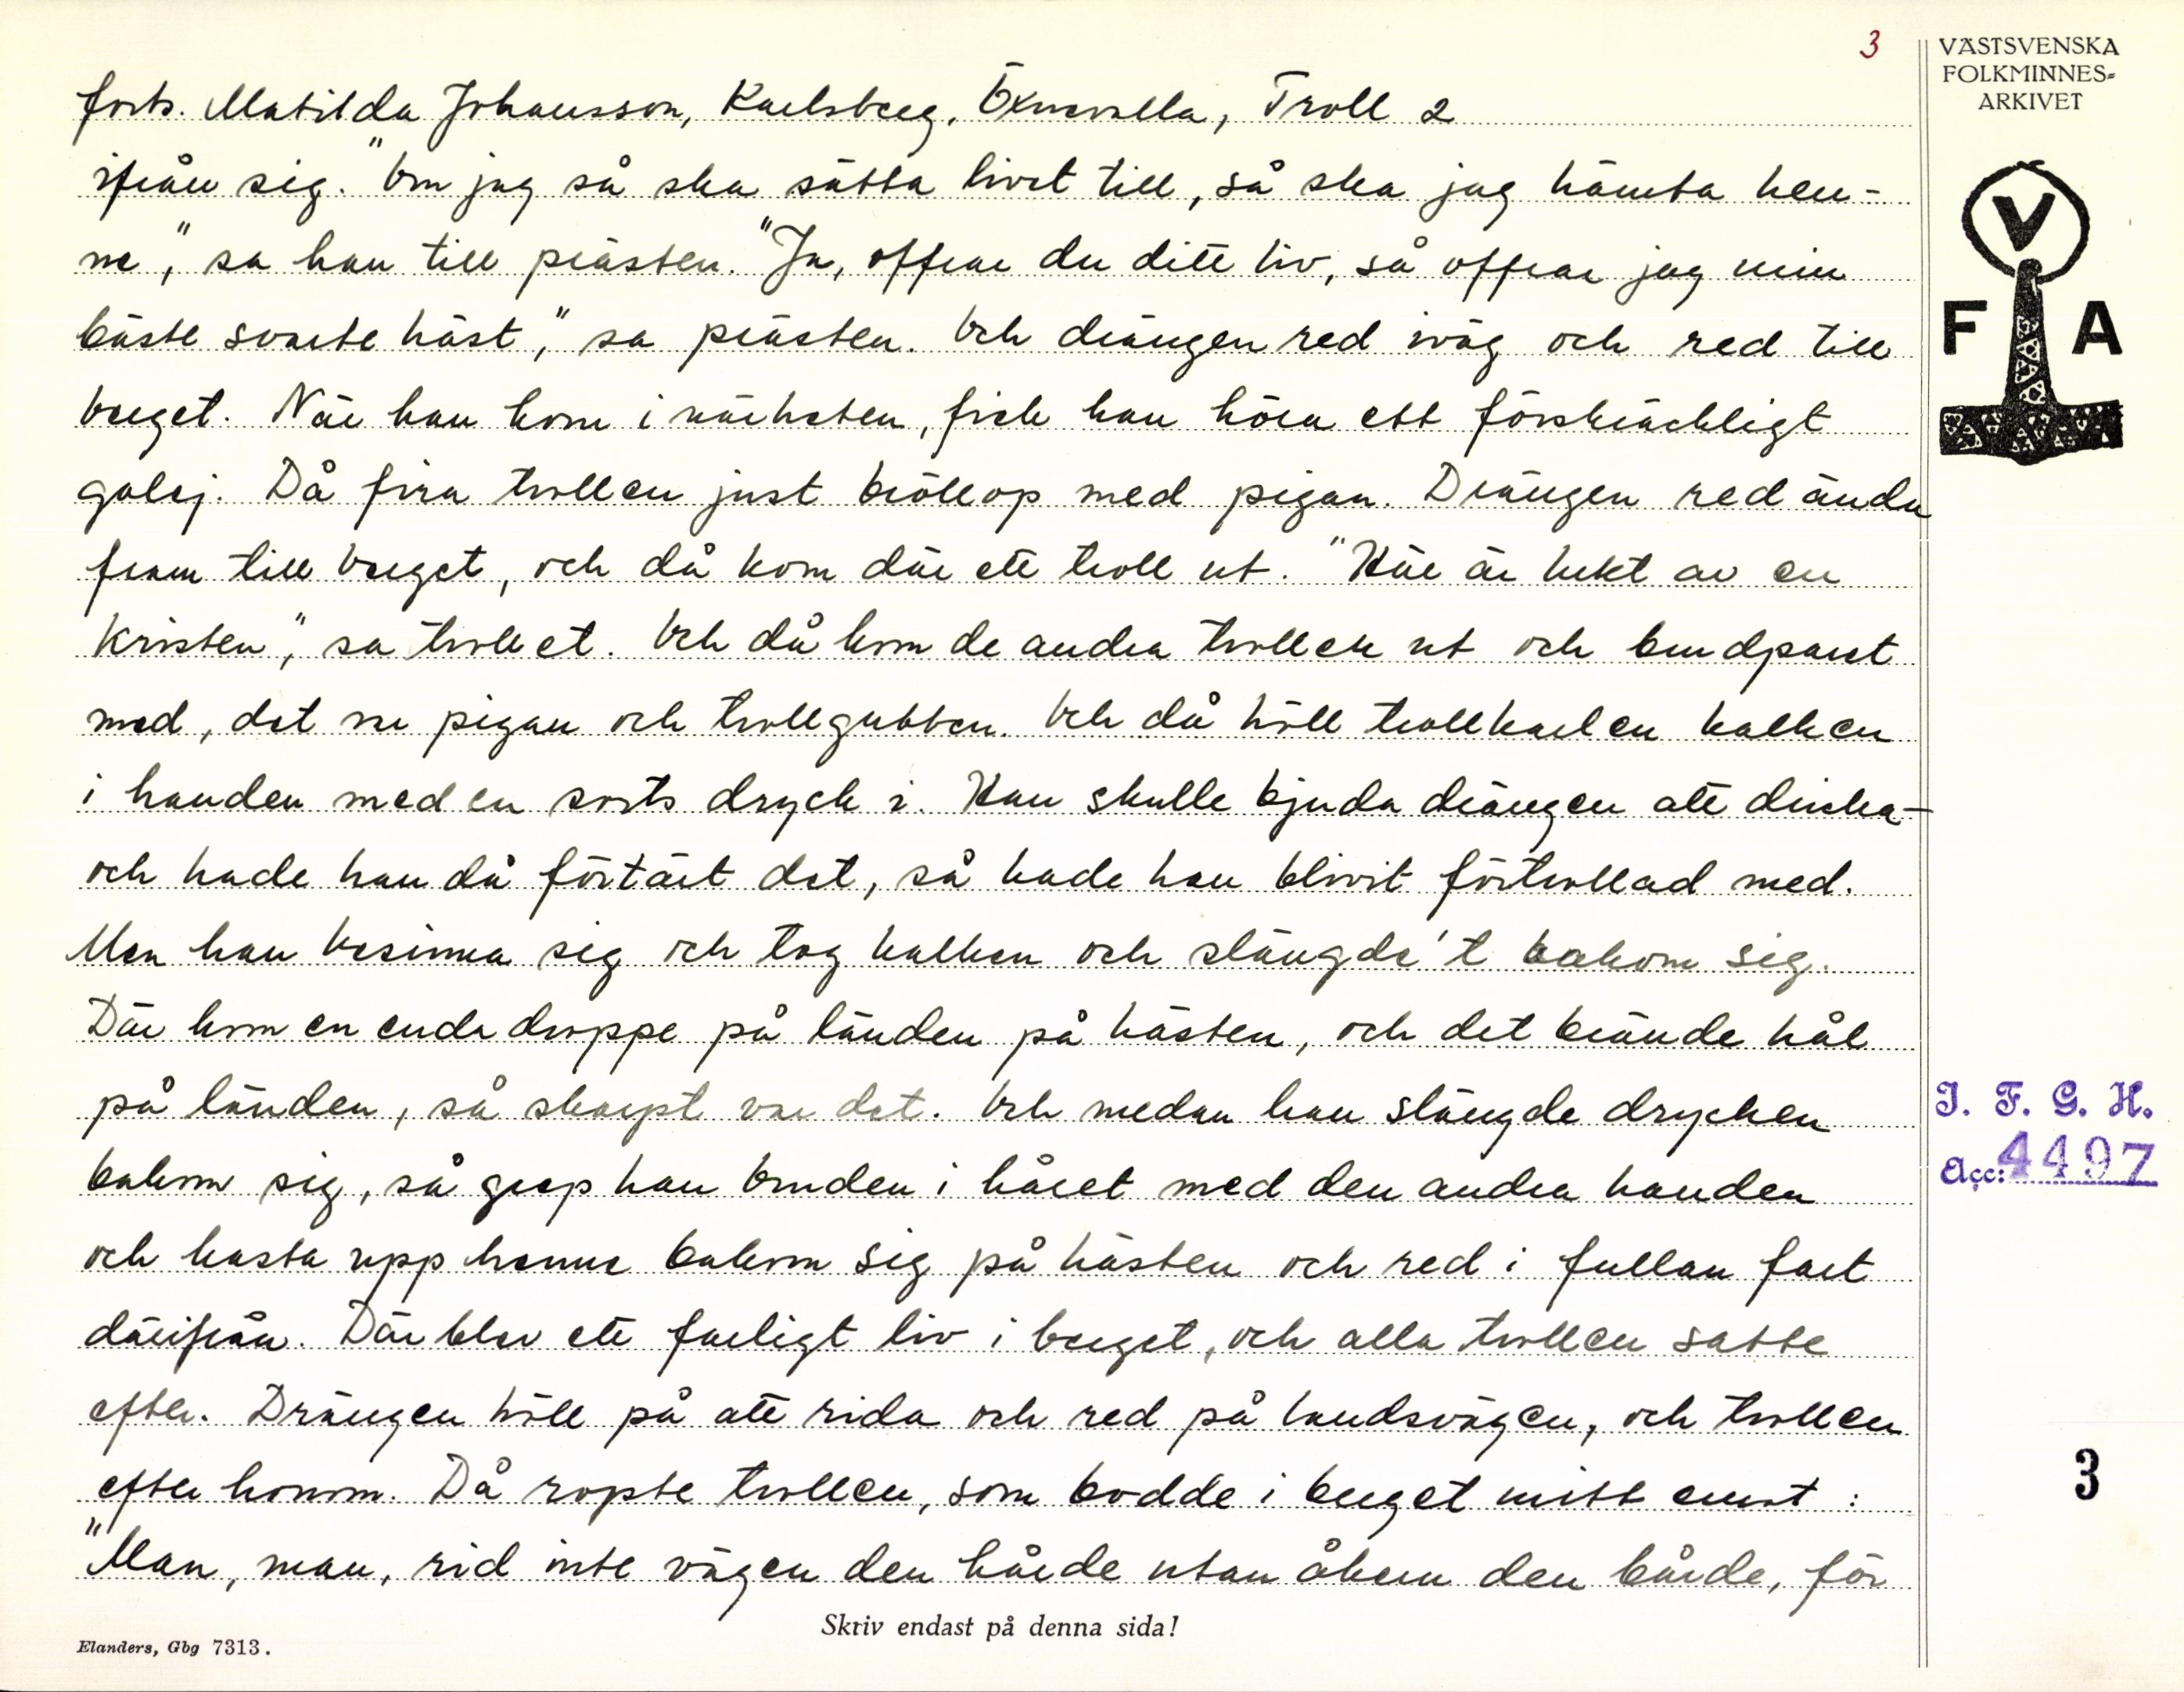 3
VÄSTSVENSKA
FOLKMINNES-
ARKIVET
forts. Matilda Johansson, Karlsberg, Öxnevalla, Troll 2
ifrån sig. "Om jag så ska sätta livet till, så ska jag hämta hen-
ne", sa han till prästen. "Ja, offrar du ditt liv, så offrar jag min
bäste svarte häst," sa prästen. Och drängen red iväg och red till
berget. När han kom i närheten, fick han höra ett förskräckligt
galej. Då fira trollen just bröllop med pigan. Drängen red ända
fram till berget, och då kom där ett troll ut. "Här är lukt av en
kristen", sa trollet. Och då kom de andra trollen ut och brudparet
med, det va pigan och trollgubben. Och då höll trollkarlen kalken
i handen med en sorts dryck i. Han skulle bjuda drängen att dricka –
och hade han då förtärt det, så hade han blivit förtrollad med.
Men han besinna sig och tog kalken och slängde 't bakom sig.
Där kom en enda droppe på länden på hästen, och det brände hål
på länden, så skarpt var det. Och medan han slängde drycken
bakom sig, så grep han bruden i håret med den andra handen
och kasta upp henne bakom sig på hästen och red i fullan fart
därifrån. Där blev ett farligt liv i berget, och alla trollen satte
efter. Drängen höll på att rida och red på landsvägen, och trollen
efter honom. Då ropte trollen, som bodde i berget mitt emot :
"Man, man, rid inte vägen den hårde utan åkern den bårde, för
V
F A
I. F. G. H.
Acc: 4497
3
Skriv endast på denna sida!
Elanders, Gbg 7313.